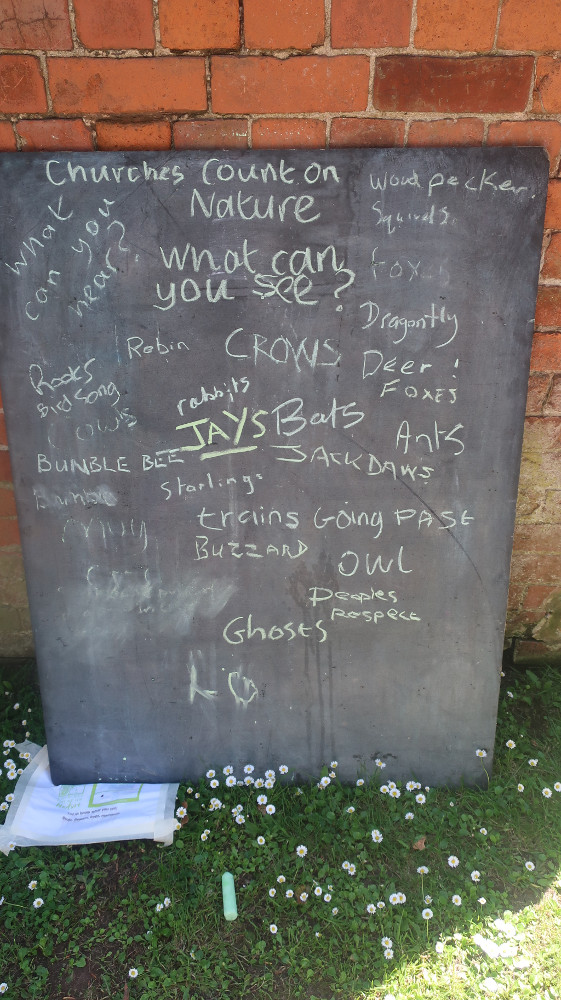 Churches Count on
Nature
What
can you
hear?
What can
you see?
Woodpecker.
Squirrels.
Fox
Dragonfly
Robin
CROWS
Deer!
FOXES
Rooks
Bird Song
rabbits
JAYS
Bats
Ants
BUMBLE BEE
JACKDAWS
Starlings
trains Going PAST
BUZZARD
OWL
Peoples
Respect
Ghosts